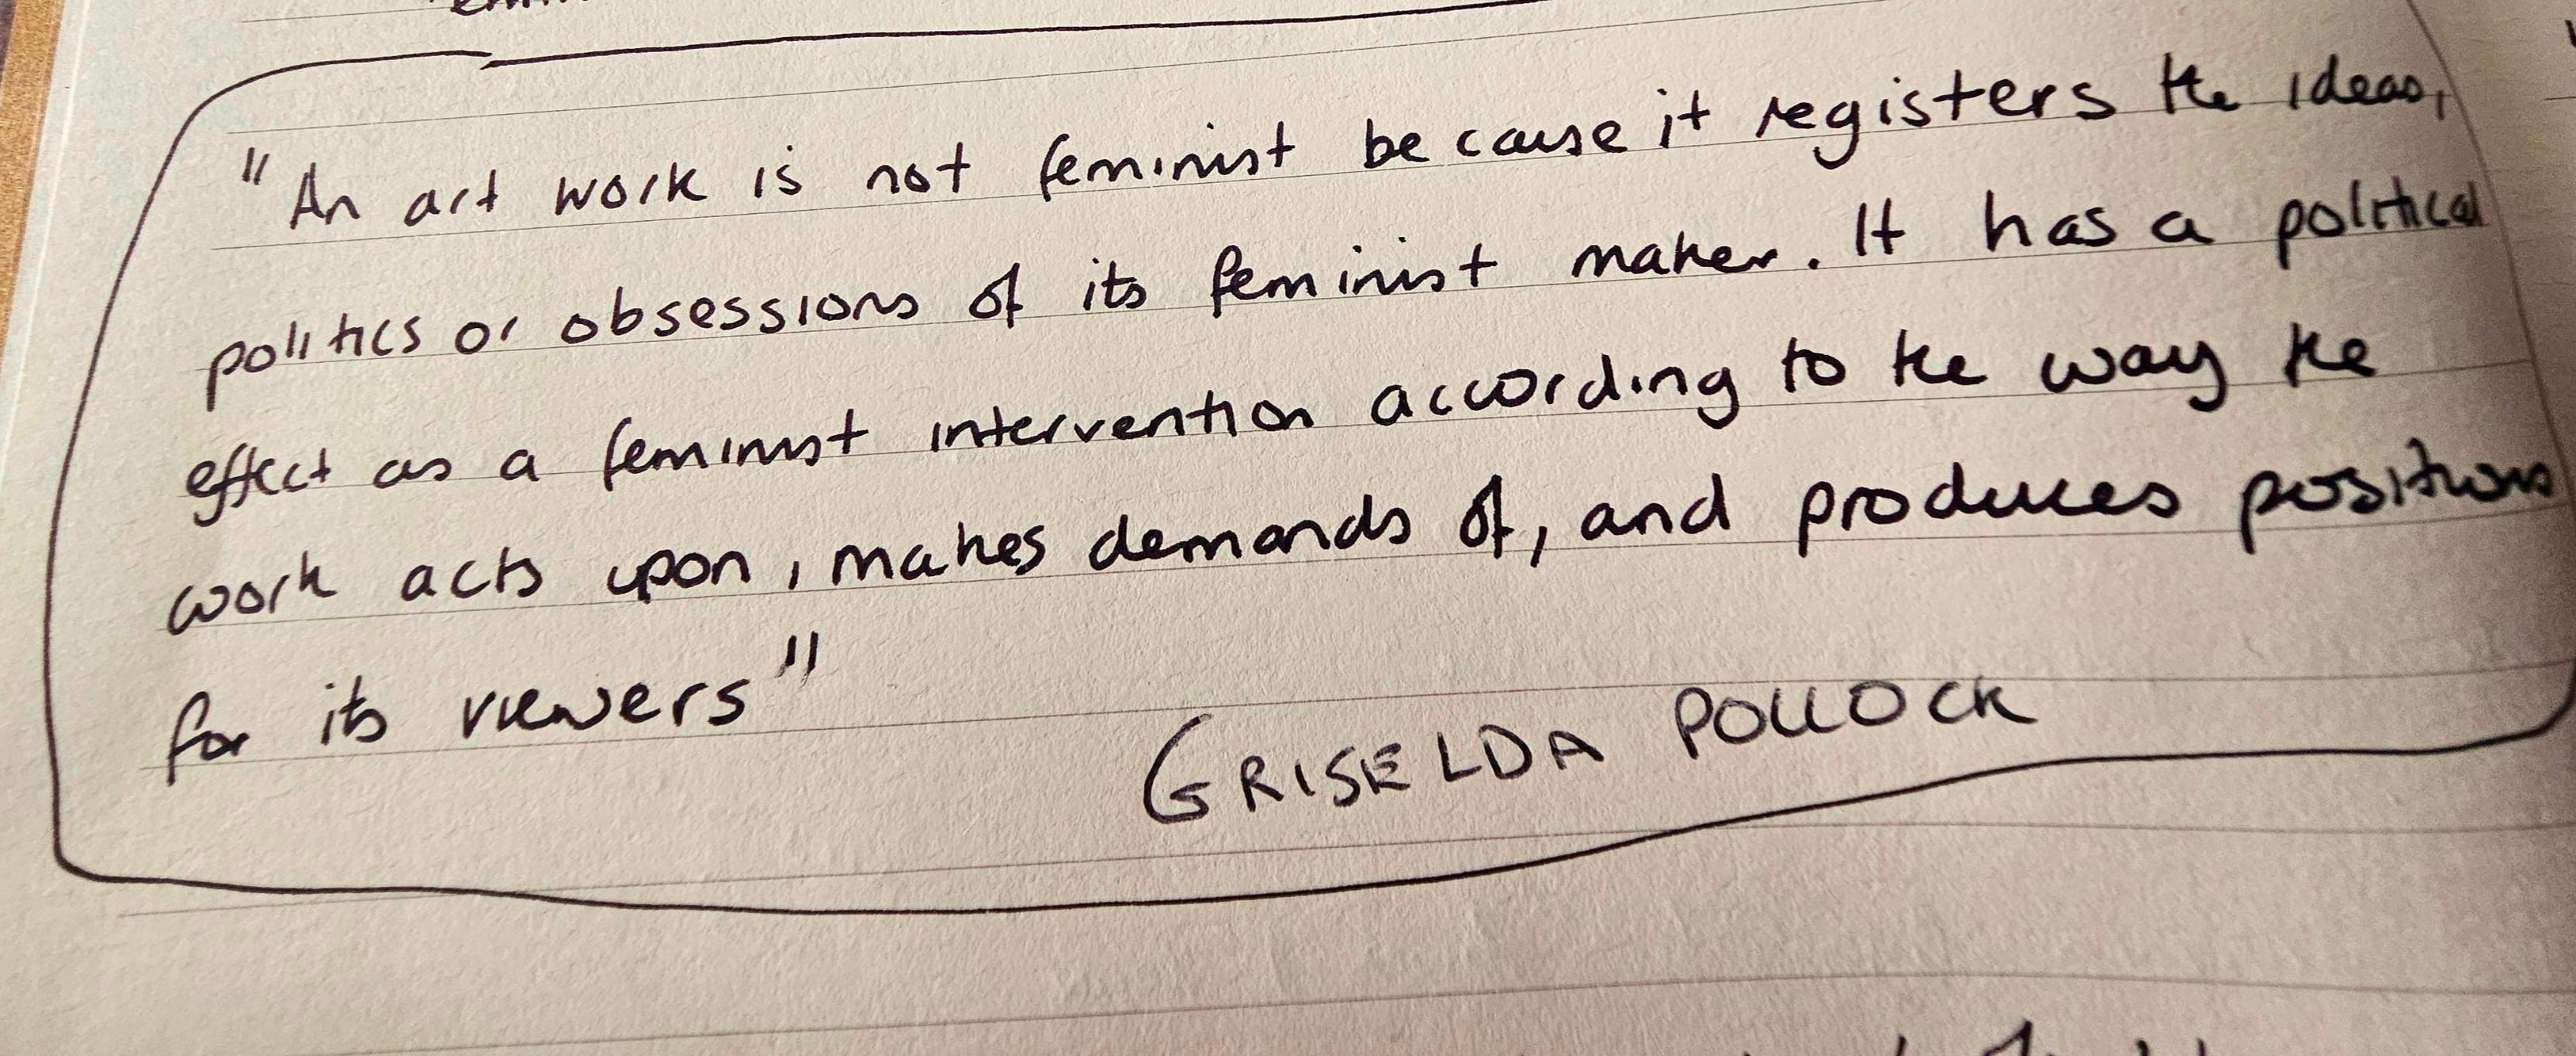 "An art work is not feminist because it registers the ideas,
politics or obsessions of its feminist maker. It has a political
effect as a feminist intervention according to the way the
work acts upon, makes demands of, and produces positions
for its viewers"
GRISELDA POLLOCK